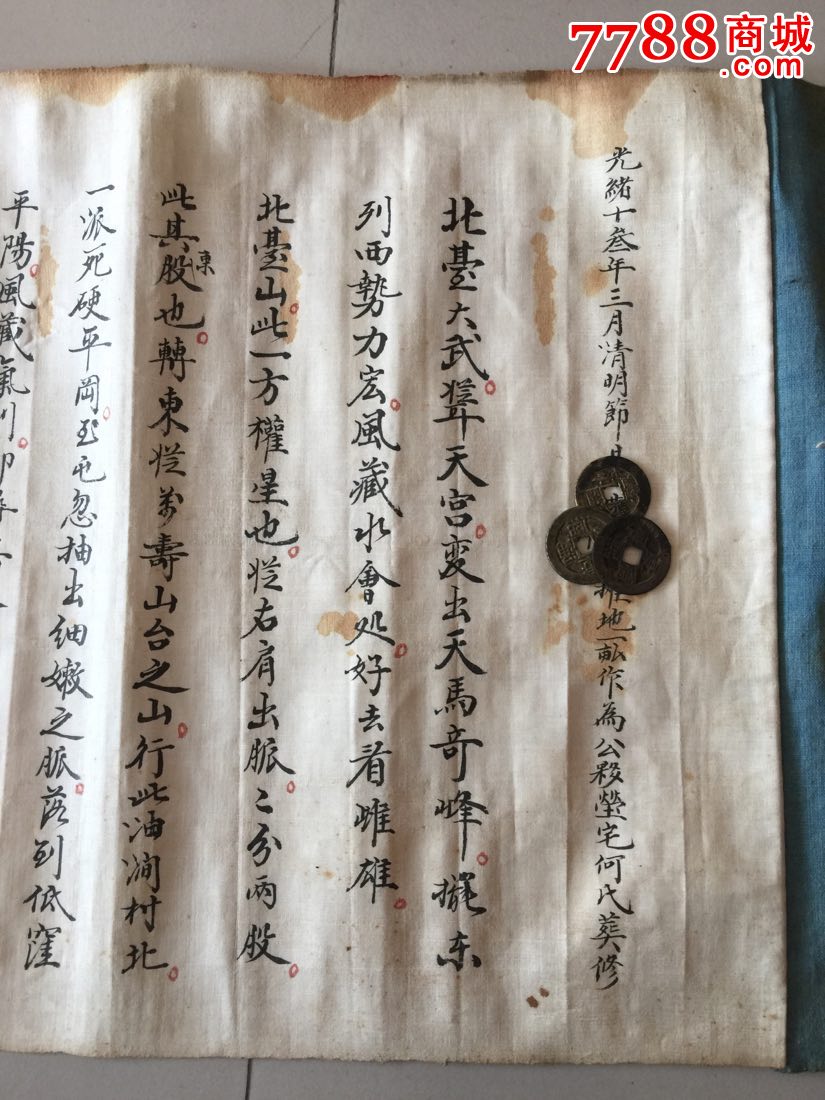 7788商城
.com
光緒十叁年三月清明節日
地一畝作為公夥塋宅何氏葬修
北臺大武聳天宮变出天馬奇峰擺东
列西勢力宏風藏水會处好去看雌雄
北臺山此一方權星也從右肩出脈〻分兩股
此其東股也轉東從萬壽山台之山行此油澗村北
一派死硬平岡至屯忽抽出细嫩之脈落到低窪
平陽風藏氣